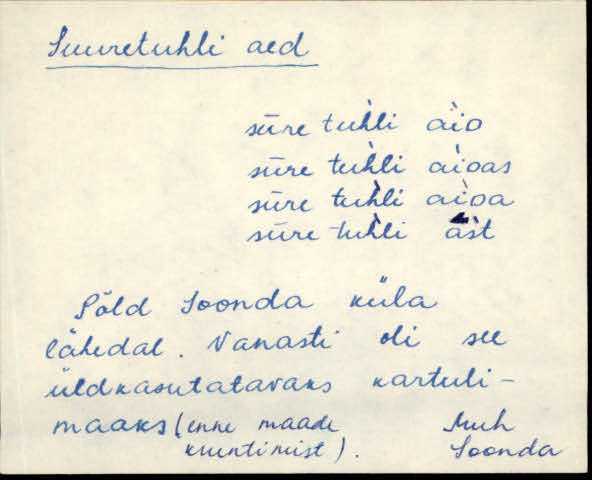 Suuretuhli aed
sūre tuh̀li àio
sūre tuh̀li àioas
sūre tuh̀li àioa
sūre tuh̀li àst
Põld Soonda küla
lähedal. Vanasti oli see
üldkasutatavaks kartuli-
maaks (enne maade
kruntimist).
Muh
Soonda